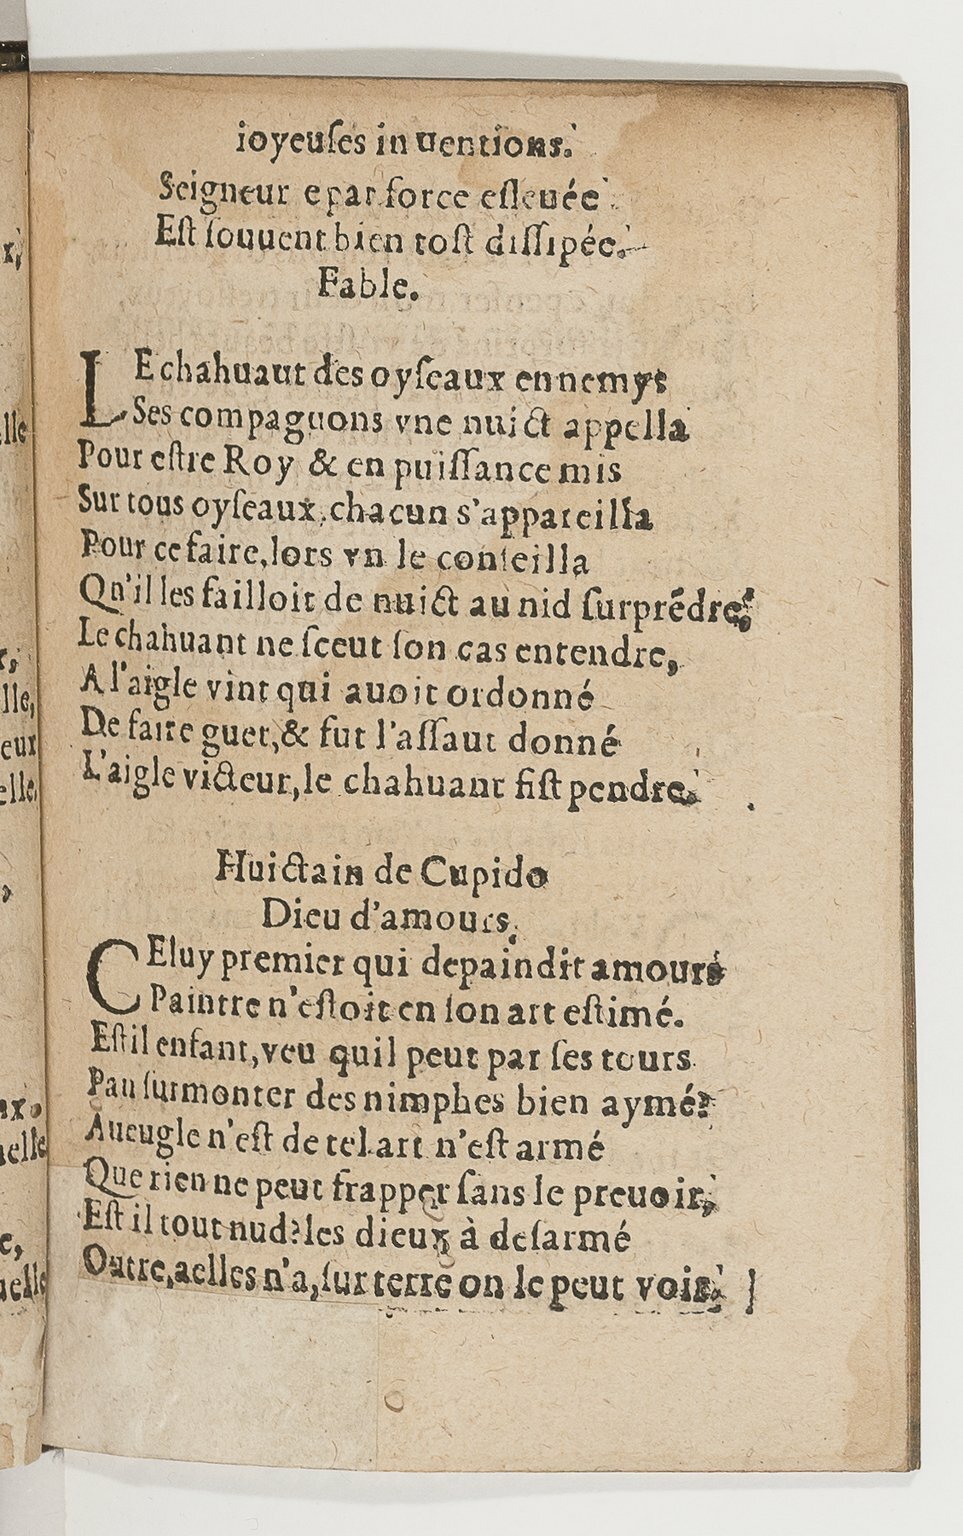 ioyeuſes inuentions.
Seigneur e par force eſleuée
Eſt ſouuent bien toſt diſſipée.
Fable.
LE chahuaut des oyſeaux ennemys
Ses compaguons vne nuict appella
Pour eſtre Roy & en puiſſance mis
Sur tous oyſeaux, chacun s'appareilla
Pour ce faire, lors vn le conſeilla
Qu'il les failloit de nuict au nid ſurprẽdre:
Le chahuant ne ſceut ſon cas entendre,
A l'aigle vint qui auoit ordonné
De faire guet, & fut l'aſſaut donné
L'aigle victeur, le chahuant fiſt pendre.
Huictain de Cupido
Dieu d'amours.
CEluy premier qui depaindit amours
Paintre n'eſtoit en ſon art eſtimé.
Eſt il enfant, veu quil peut par ſes tours
Pau ſurmonter des nimphes bien aymé?
Aueugle n'eſt de tel art n'eſt armé
Que rien ne peut frapper ſans le preuoir,
Eſt il tout nud? les dieux à deſarmé
Outre, aelles n'a, ſur terre on le peut voir.
x,
lle
r,
lle,
eux
elle,
,
ux.
uelle
e,
uelle